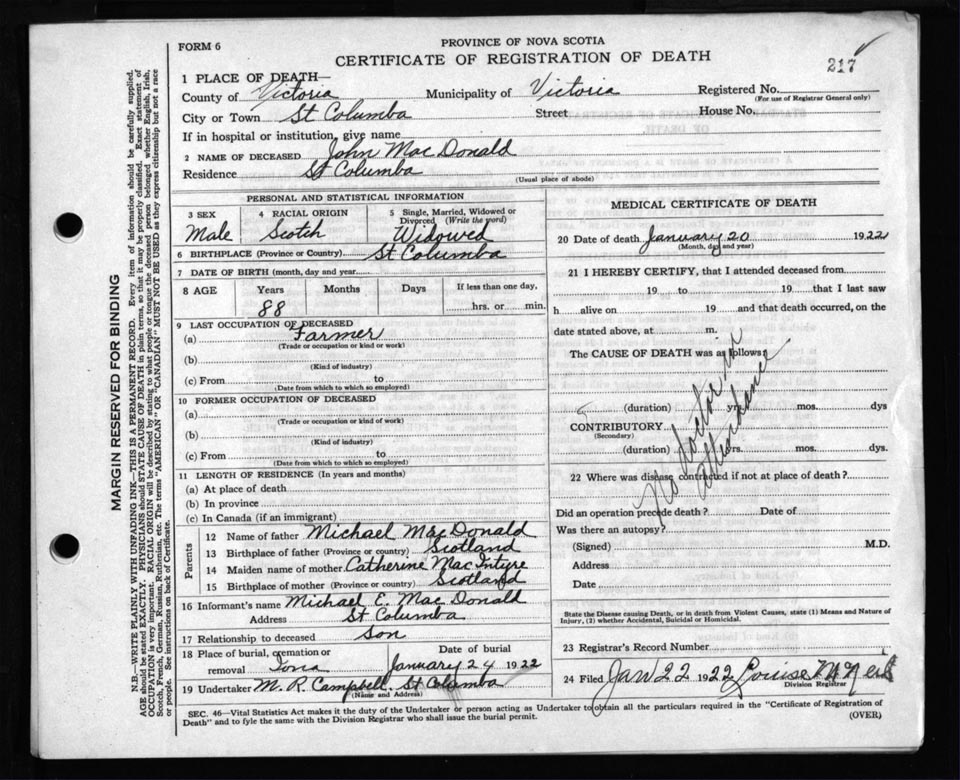 FORM 6
PROVINCE OF NOVA SCOTIA
CERTIFICATE OF REGISTRATION OF DEATH
217
1 PLACE OF DEATH—
County of Victoria Municipality of Victoria Registered No.
(For use of Registrar General only)
City or Town St Columba Street House No.
If in hospital or institution, give name
2 NAME OF DECEASED John MacDonald
Residence St Columba
(Usual place of abode)
PERSONAL AND STATISTICAL INFORMATION
3 SEX 4 RACIAL ORIGIN 5 Single, Married, Widowed or Divorced (Write the word)
Male Scotch Widowed
6 BIRTHPLACE (Province or Country) St Columba
7 DATE OF BIRTH (month, day and year
8 AGE Years Months Days If less than one day,
88 hrs. or min.
9 LAST OCCUPATION OF DECEASED
(a) Farmer
(Trade or occupation or kind or work)
(b)
(Kind of industry)
(c) From to
(Date from which to which so employed)
10 FORMER OCCUPATION OF DECEASED
(a)
(Trade or occupation or kind of work)
(b)
(Kind of industry)
(c) From to
(Date from which to which so employed)
11 LENGTH OF RESIDENCE (In years and months)
(a) At place of death
(b) In province
(c) In Canada (if an immigrant)
Parents
12 Name of father Michael MacDonald
13 Birthplace of father (Province or country) Scotland
14 Maiden name of mother Catherine MacIntyre
15 Birthplace of mother (Province or country) Scotland
16 Informant's name Michael E. MacDonald
Address St Columba
17 Relationship to deceased Son
18 Place of burial, cremation or removal Iona Date of burial January 24 1922
19 Undertaker M. R. Campbell St Columba
(Name and Address)
MEDICAL CERTIFICATE OF DEATH
20 Date of death January 20 1922
(Month, day and year)
21 I HEREBY CERTIFY, that I attended deceased from
19 to 19 that I last saw
h alive on 19 and that death occurred, on the
date stated above, at m.
The CAUSE OF DEATH was as follows:
No doctor in attendance
(duration) yrs. mos. dys
CONTRIBUTORY
(Secondary)
(duration) yrs. mos. dys
22 Where was disease contracted if not at place of death?
Did an operation precede death? Date of
Was there an autopsy?
(Signed) M.D.
Address
Date
State the Disease causing Death, or in death from Violent Causes, state (1) Means and Nature of
Injury, (2) whether Accidental, Suicidal or Homicidal.
23 Registrar's Record Number
24 Filed Jan 22 1922 Louise McNeil
Division Registrar
SEC. 46—Vital Statistics Act makes it the duty of the Undertaker or person acting as Undertaker to obtain all the particulars required in the "Certificate of Registration of
Death" and to fyle the same with the Division Registrar who shall issue the burial permit.
(OVER)
MARGIN RESERVED FOR BINDING
N.B.—WRITE PLAINLY WITH UNFADING INK—THIS IS A PERMANENT RECORD. Every item of information should be carefully supplied.
AGE should be stated EXACTLY. PHYSICIANS should STATE CAUSE OF DEATH in plain terms, so that it may be properly classified. Exact statement of
OCCUPATION is very important. RACIAL ORIGIN will be described by stating to what people or tongue the deceased person belonged whether English, Irish,
Scotch, French, German, Russian, Ruthenian, etc. The terms "AMERICAN" OR "CANADIAN" MUST NOT BE USED as they express citizenship but not a race
or people. See instructions on back of Certificate.